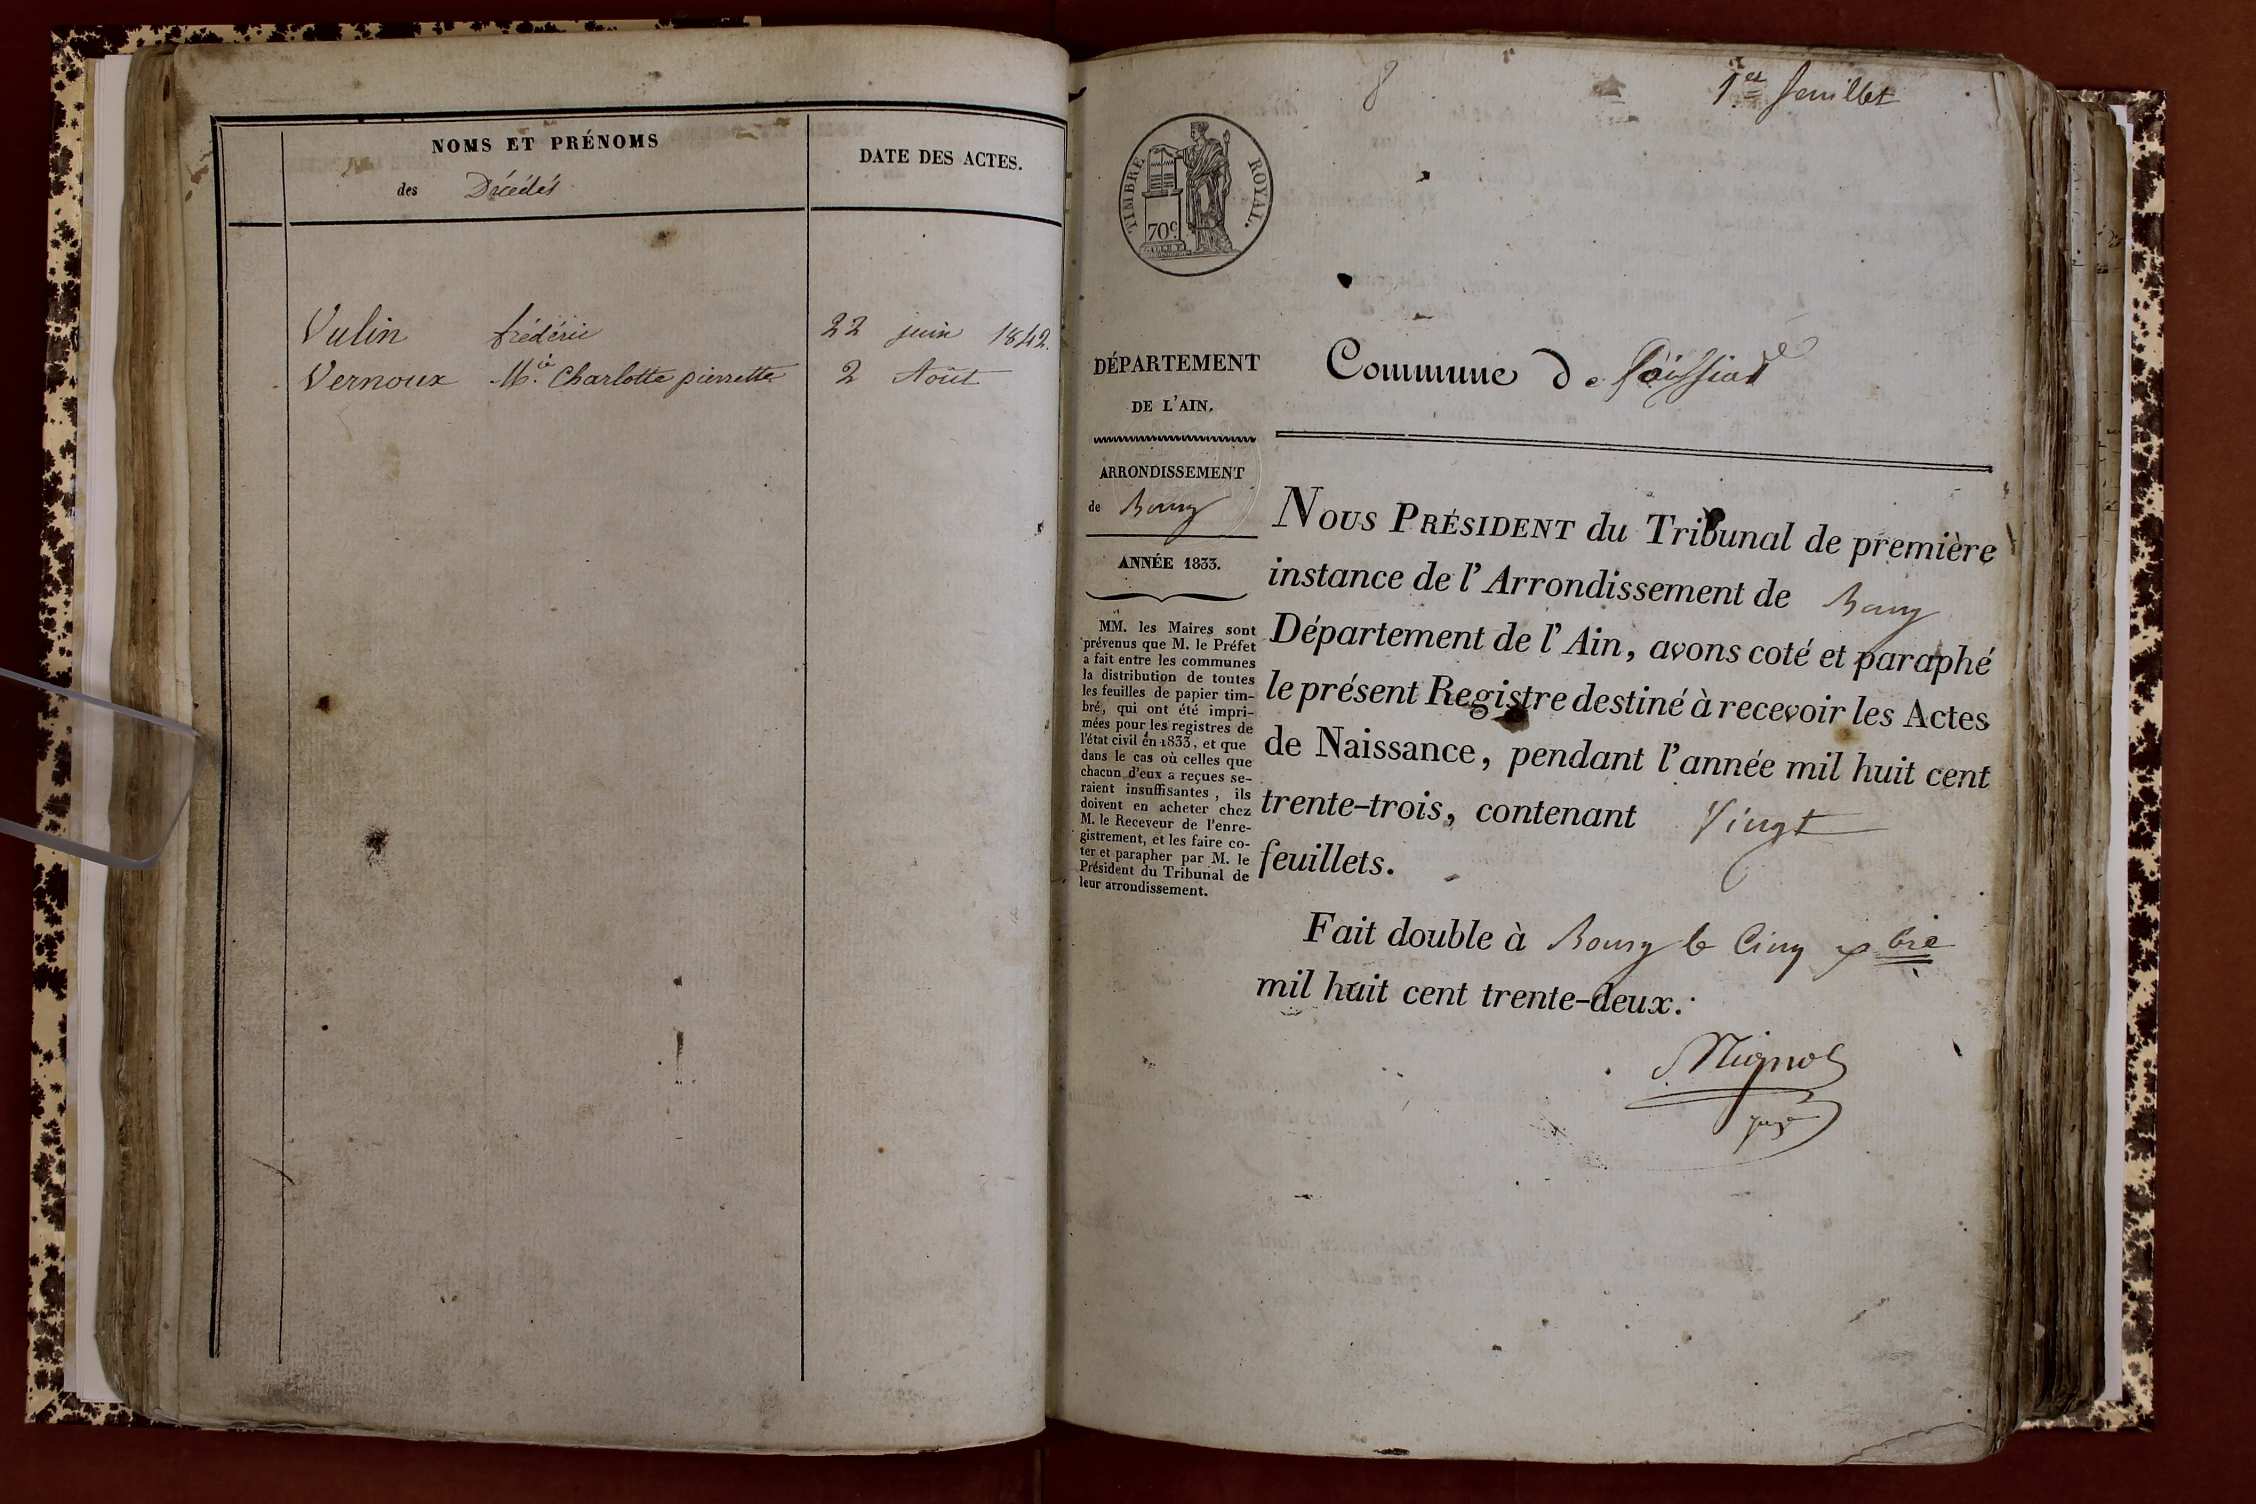 NOMS ET PRÉNOMS
des Décédés
DATE DES ACTES.
Vulin frédéric 22 juin 1842.
Vernoux M.ie Charlotte pierrette 2 Août
8
1.er feuillet
TIMBRE ROYAL.
70c
DÉPARTEMENT
DE L'AIN.
ARRONDISSEMENT
de Bourg
ANNÉE 1833.
MM. les Maires sont
prévenus que M. le Préfet
a fait entre les communes
la distribution de toutes
les feuilles de papier tim-
bré, qui ont été impri-
mées pour les registres de
l'état civil en 1833, et que
dans le cas où celles que
chacun d'eux a reçues se-
raient insuffisantes, ils
doivent en acheter chez
M. le Receveur de l'enre-
gistrement, et les faire co-
ter et parapher par M. le
Président du Tribunal de
leur arrondissement.
Commune de
NOUS PRÉSIDENT du Tribunal de première
instance de l'Arrondissement de Bourg
Département de l'Ain, avons coté et paraphé
le présent Registre destiné à recevoir les Actes
de Naissance, pendant l'année mil huit cent
trente-trois, contenant Vingt
feuillets.
Fait double à Bourg le Cinq xbre
mil huit cent trente-deux.
juge